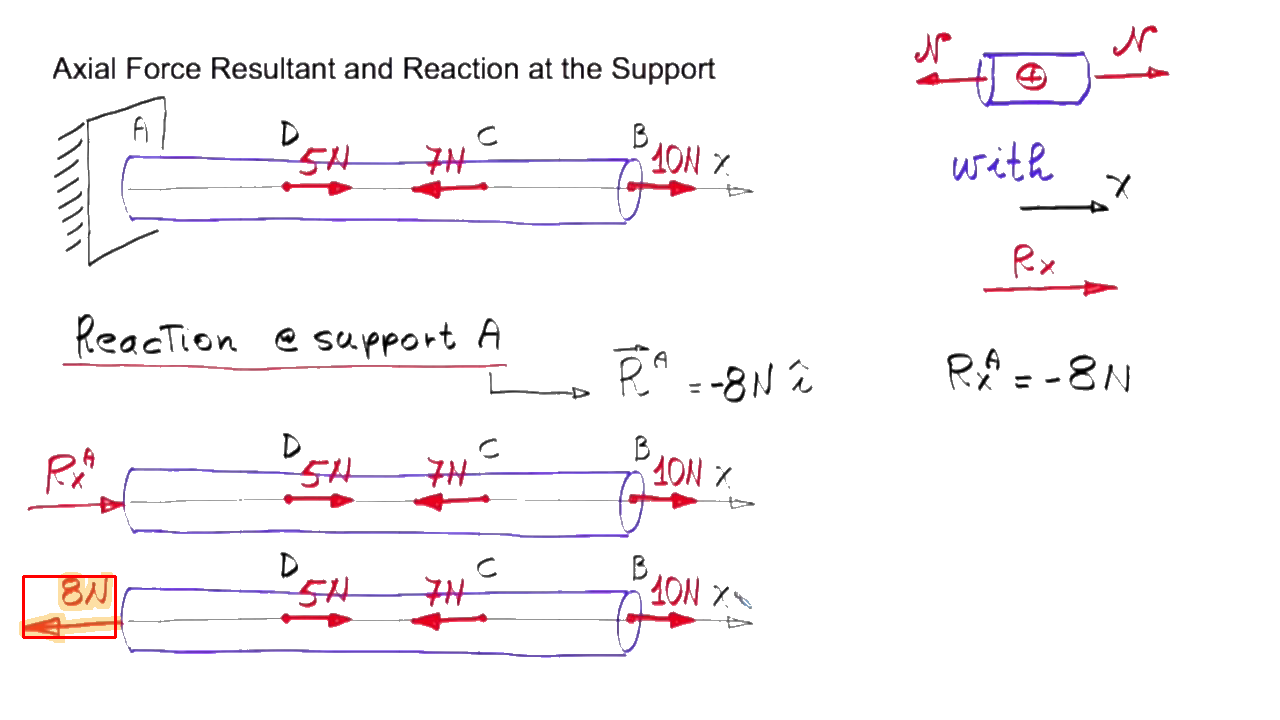 Axial Force Resultant and Reaction at the Support
N N
A D C B
5N 7N 10N x
with
x
Rx
Reaction @ support A
R^A = -8N î
Rx^A = -8N
D C B
Rx^A 5N 7N 10N x
D C B
8N 5N 7N 10N x